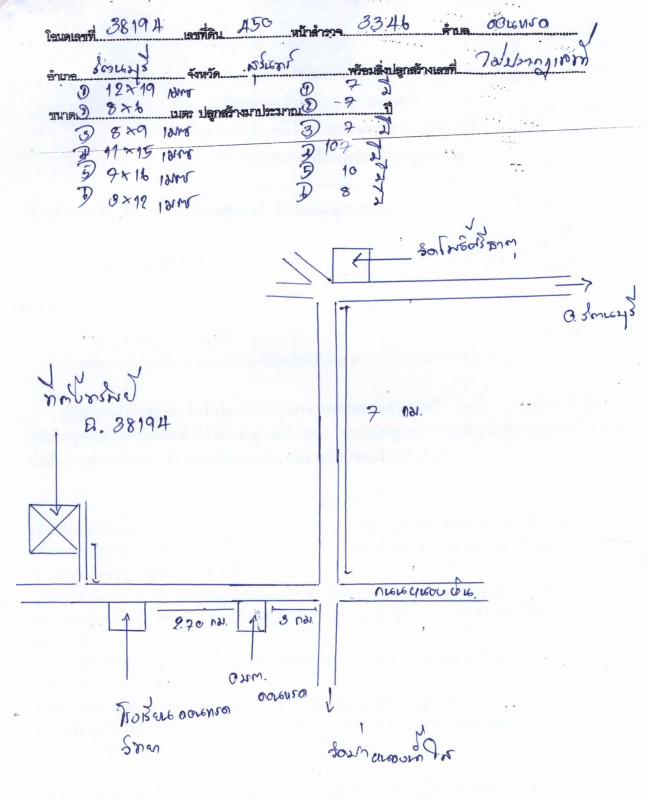 โฉนดเลขที่ 38194 เลขที่ดิน 450 หน้าสำรวจ 3346 ตำบล ดอนแรด
อำเภอ รัตนบุรี จังหวัด สุรินทร์ พร้อมสิ่งปลูกสร้างเลขที่ ไม่ปรากฏเลขที่
ขนาด ① 12×19 เมตร ① 7 ปี
② 8×6 เมตร ปลูกสร้างมาประมาณ ② 7 ปี
③ 8×9 เมตร ③ 7 ปี
④ 11×15 เมตร ④ 10 ปี
⑤ 7×16 เมตร ⑤ 10 ปี
⑥ 9×12 เมตร ⑥ 8 ปี
วัดโพธิ์ศรีธาตุ
อ.รัตนบุรี
ที่ตั้งทรัพย์
ฉ. 38194
7 กม.
2.70 กม. 3 กม.
อบต.
ดอนแรด
โรงเรียนดอนแรด
วิทยา
วัดป่าหนองน้ำใส